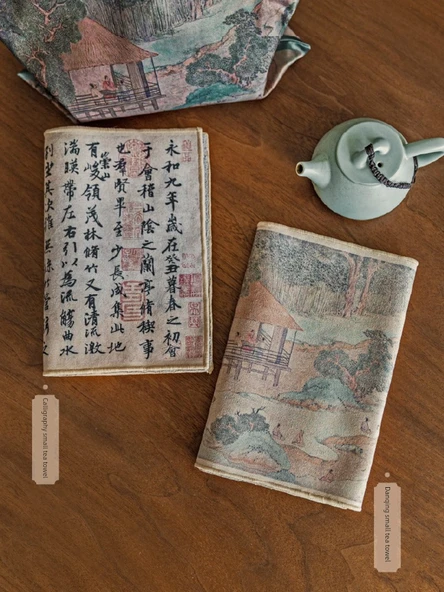 永和九年歲在癸丑暮春之初會
于會稽山陰之蘭亭脩禊事
也羣賢畢至少長咸集此地
有崇山峻領茂林脩竹又有清流激
湍暎帶左右引以為流觴曲水
列坐其次
Calligraphy small tea towel
Danqing small tea towel